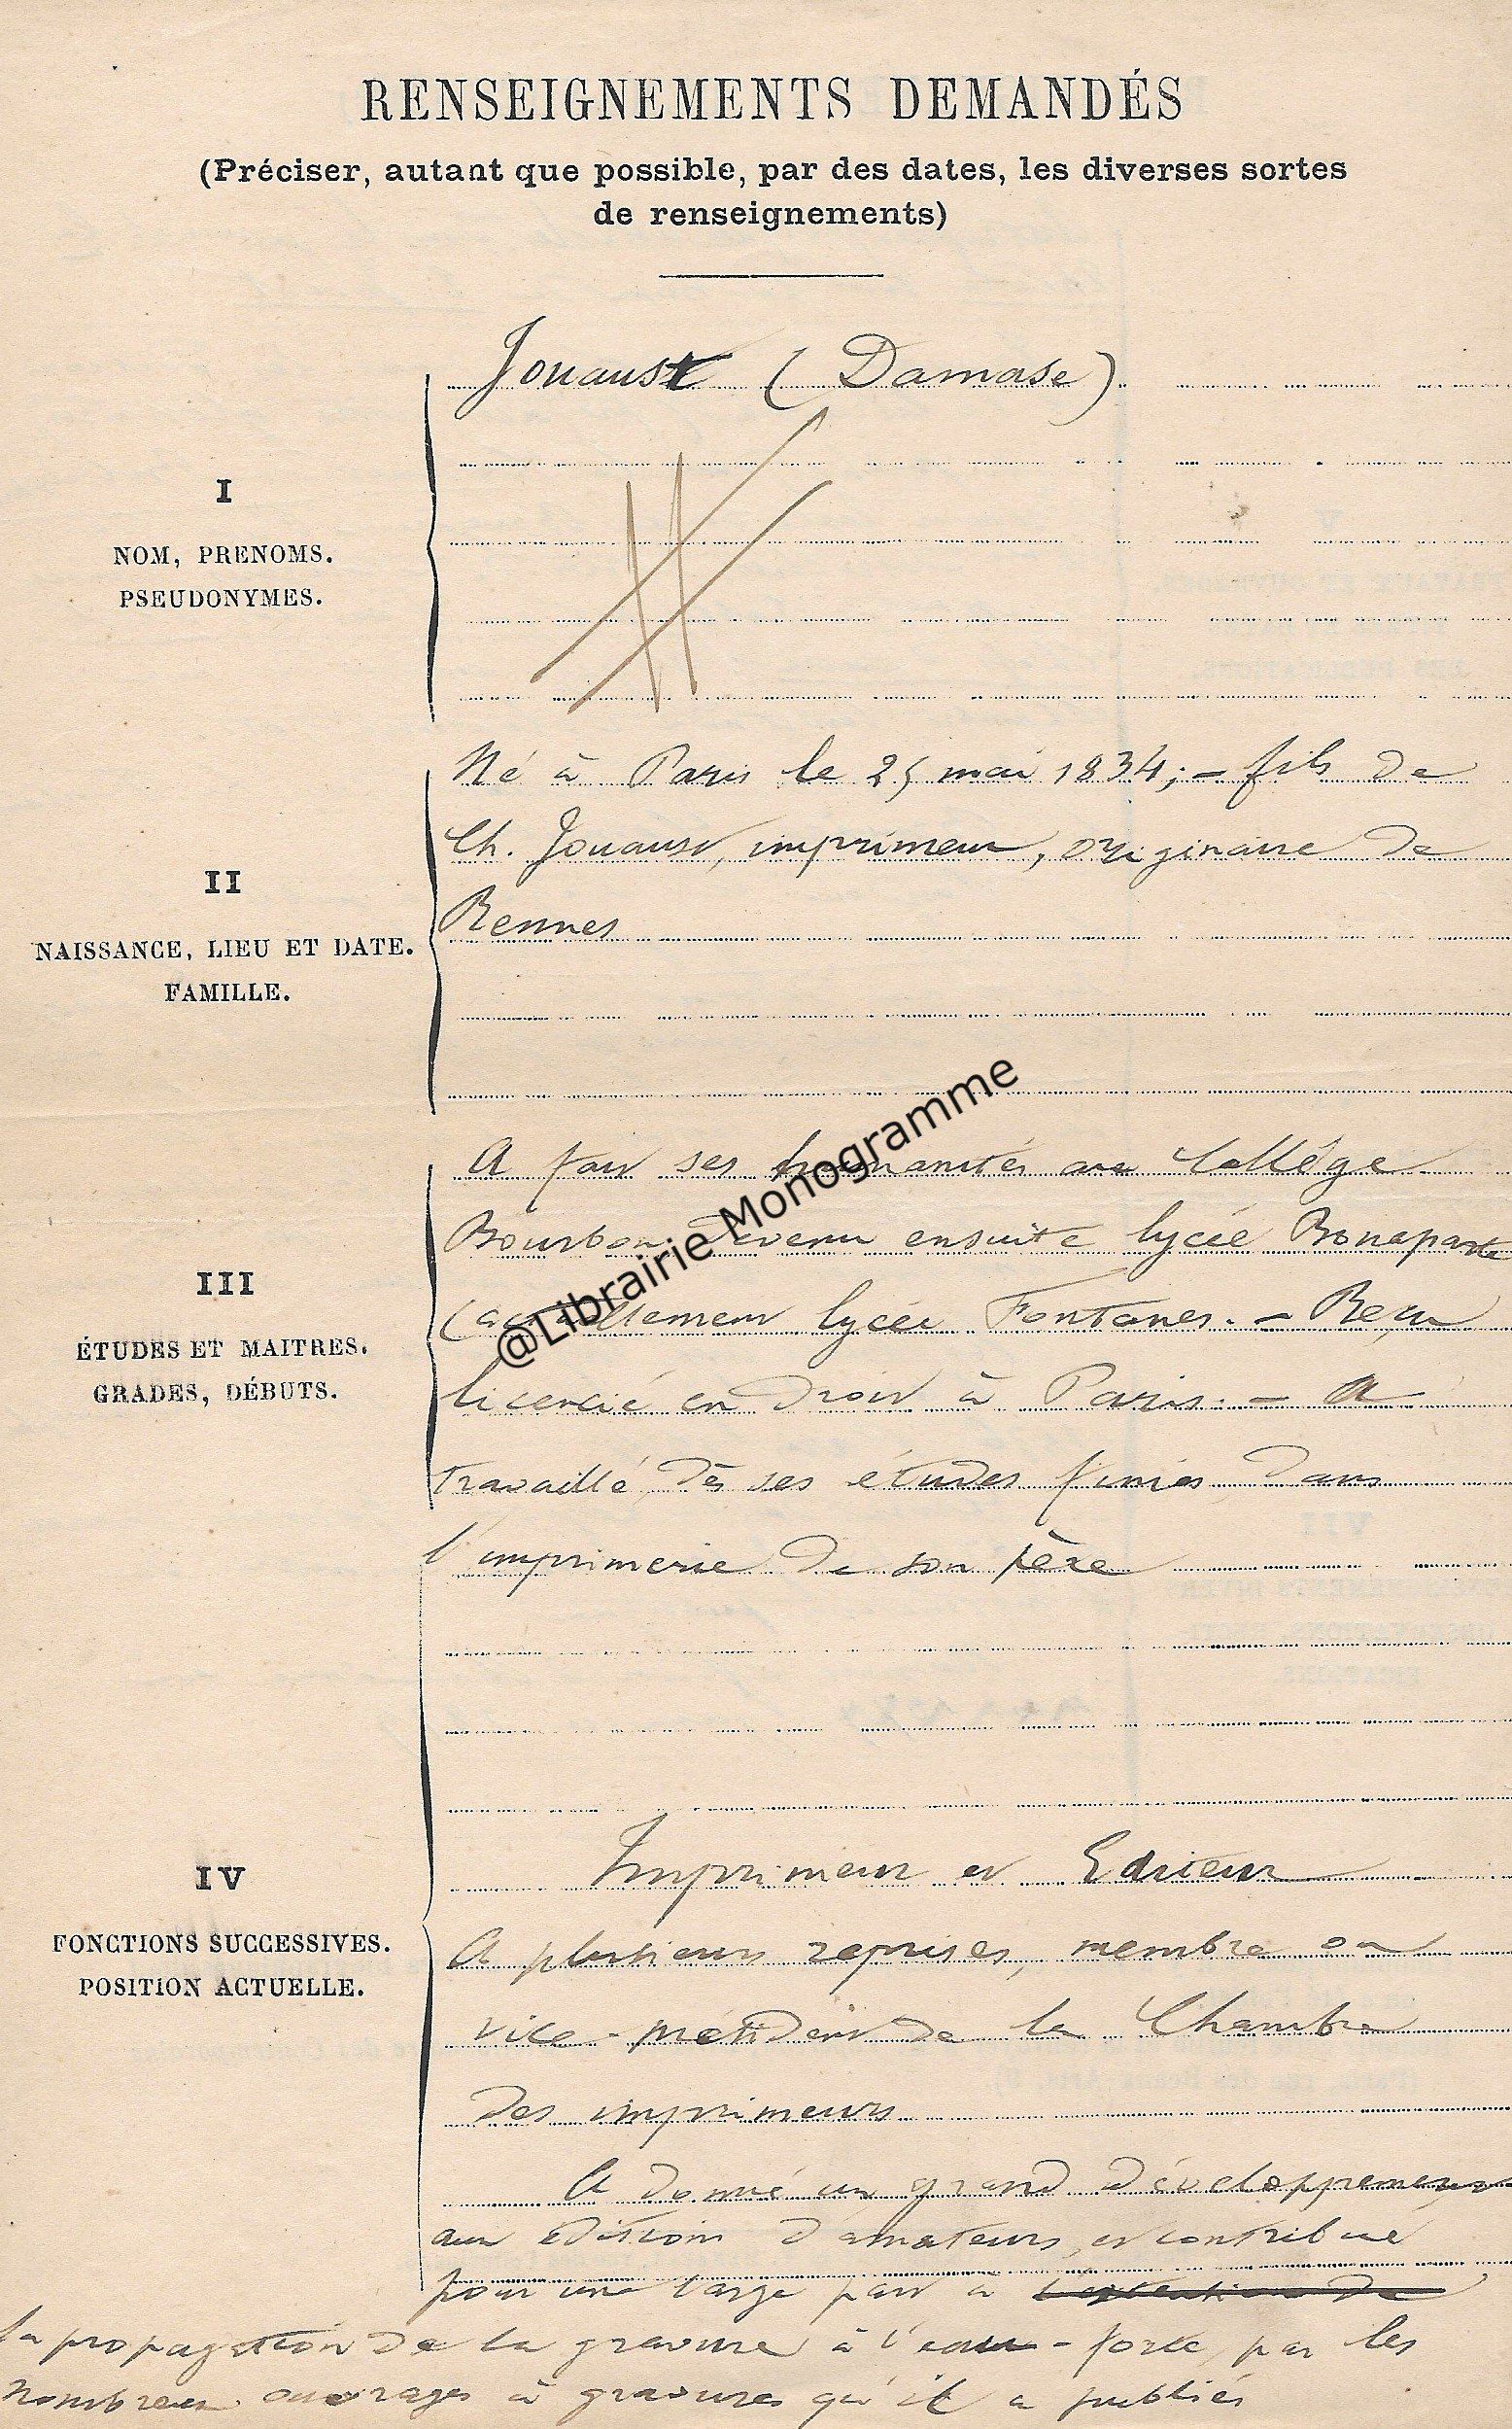 RENSEIGNEMENTS DEMANDÉS
(Préciser, autant que possible, par des dates, les diverses sortes
de renseignements)
I
NOM, PRENOMS.
PSEUDONYMES.
Jouaust (Damase)
II
NAISSANCE, LIEU ET DATE.
FAMILLE.
Né à Paris le 25 mai 1834; - fils de
Ch. Jouaust, imprimeur, originaire de
Rennes
III
ÉTUDES ET MAITRES.
GRADES, DÉBUTS.
A fait ses humanités au Collége
Bourbon, devenu ensuite lycée Bonaparte
(actuellement lycée Fontanes. - Reçu
licencié en droit à Paris. - A
travaillé, dès ses études finies, dans
l'imprimerie de son père
IV
FONCTIONS SUCCESSIVES.
POSITION ACTUELLE.
Imprimeur et Editeur
A plusieurs reprises, membre ou
vice-président de la Chambre
des imprimeurs
A donné un grand développement
aux éditions d'amateurs, et contribué
pour une large part à l'extension de
la propagation de la gravure à l'eau-forte, par les
nombreux ouvrages à gravures qu'il a publiés
@Librairie Monogramme